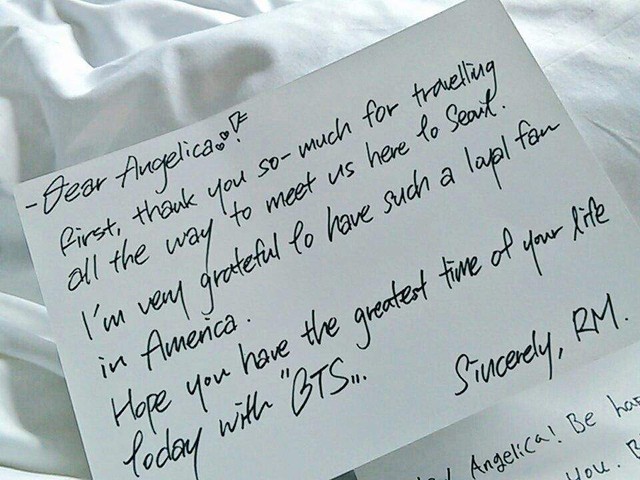 - Dear Angelica
First, thank you so-much for travelling
all the way to meet us here to Seoul.
I'm very grateful to have such a loyal fan
in America.
Hope you have the greatest time of your life
today with "BTS"...
Sincerely, RM.
Angelica! Be
you.